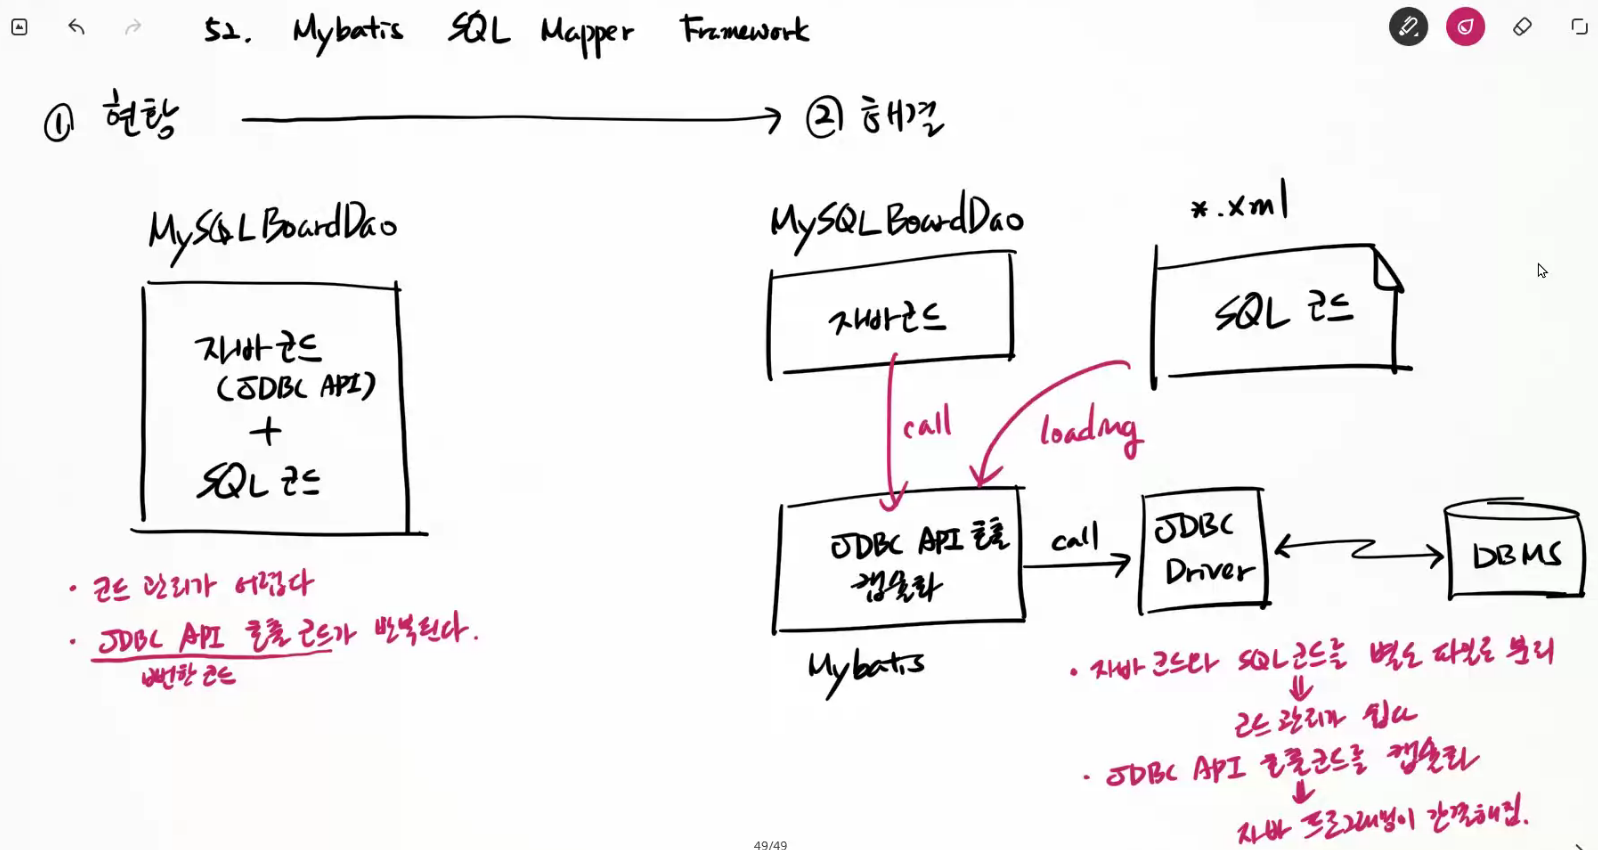 52. Mybatis SQL Mapper Framework
① 현황
② 해결
MySQLBoardDao
자바코드
(JDBC API)
+
SQL 코드
· 코드 관리가 어렵다
· JDBC API 호출 코드가 반복된다.
뻔한 코드
MySQLBoardDao
*.xml
자바코드
SQL 코드
call
loading
JDBC API 호출
캡슐화
Mybatis
call
JDBC
Driver
DBMS
· 자바 코드와 SQL 코드를 별도 파일로 분리
⇓
코드 관리가 쉽다
· JDBC API 호출코드를 캡슐화
↓
자바 프로그래밍이 간결해짐.
49/49